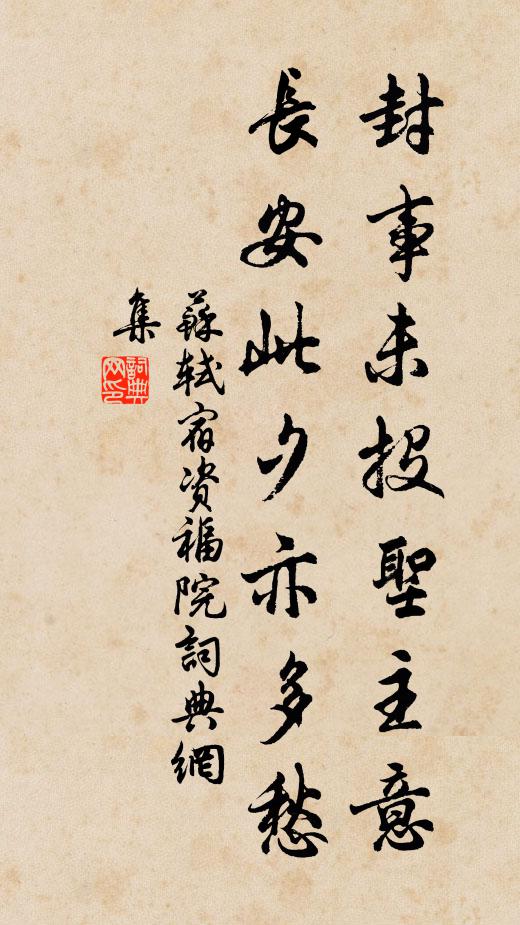 封事未投聖主意
長安此夕亦多愁
蘇軾宿資福院詞典網
集
詞典網印